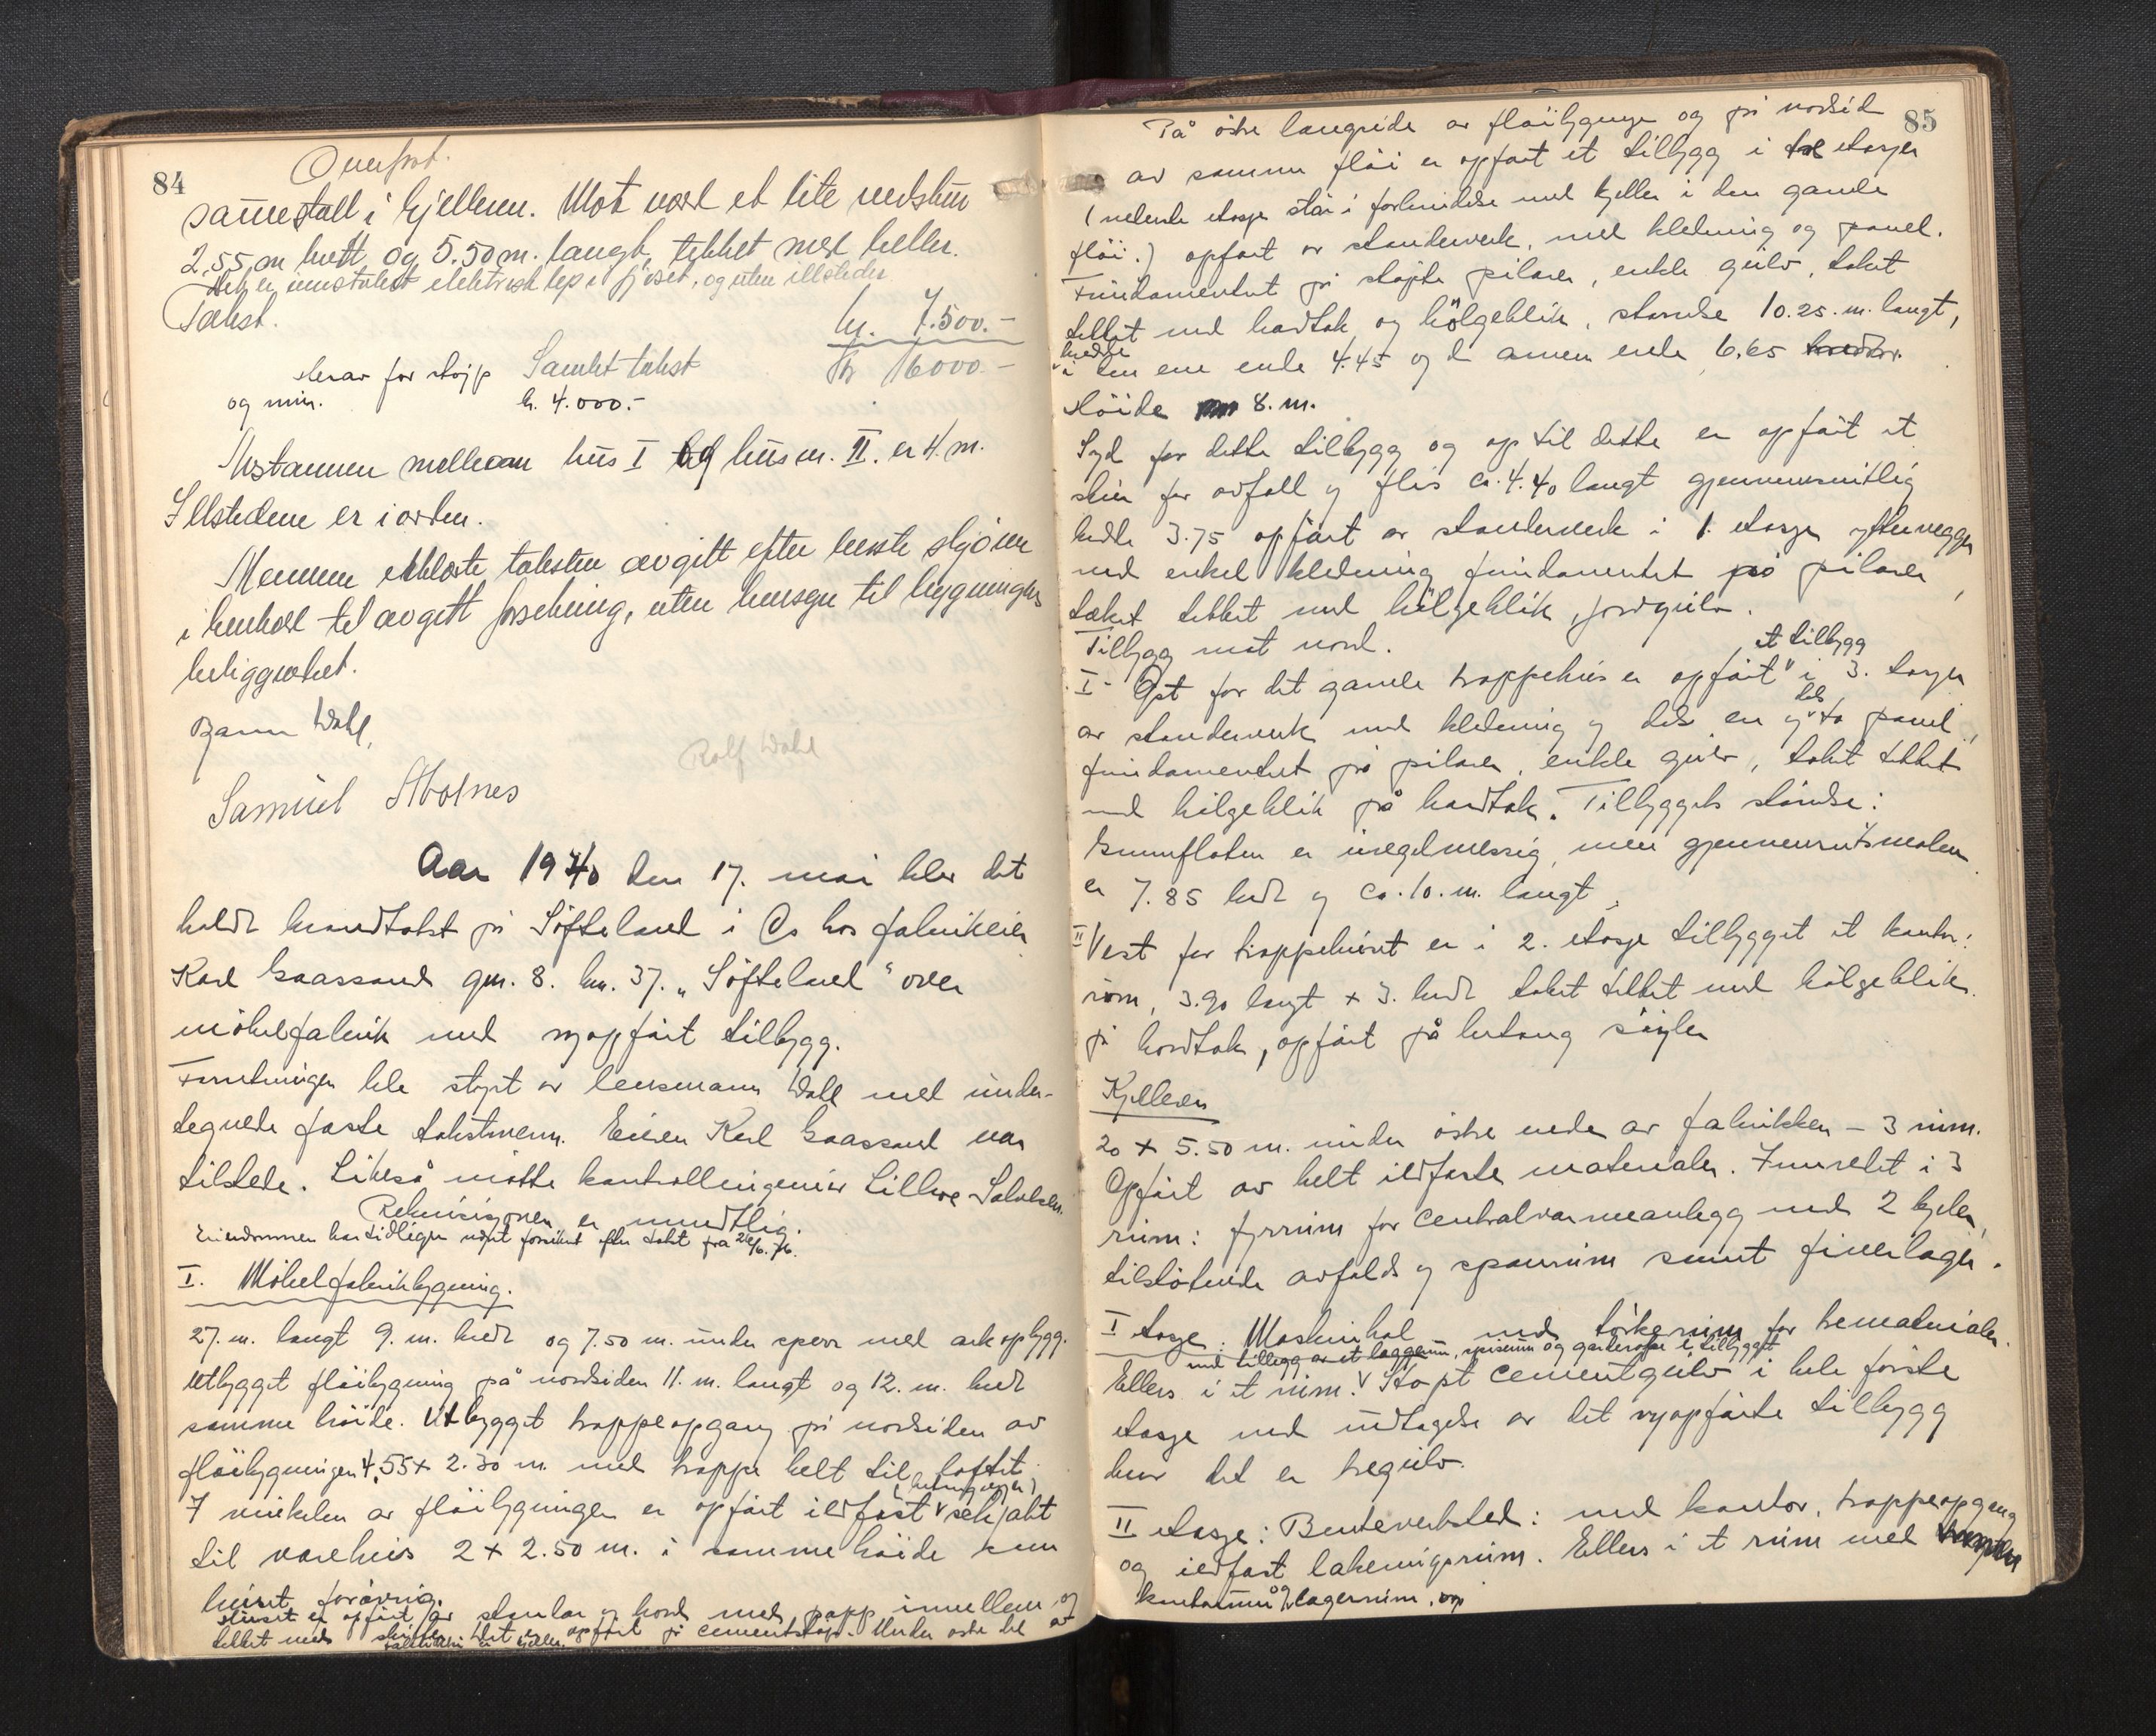 84
Overført.
sauestall i kjelleren. Mot nord et lite vedskur
2,55 m bredt og 5.50 m. langt, tekket med heller.
Det er innstalert elektrisk lys i fjøset, og uten illsteder
Takst. kr. 7.500.-
Samlet takst kr 16000-
Herav for støyp
og mur. kr. 4.000.-
Avstannen mellom hus I og hus nr. II. er 4 m.
Illstedene er i orden.
Mennene erklærte taksten avgitt efter beste skjønn
i henhold til avgitt forsikring, uten hensyn til bygningens
beliggenhet.
Bjarne Wahl,
Rolf Wahl
Samuel Moldnes
Aar 1940 den 17. mai blev det
holdt brandtakst på Søfteland i Os hos fabrikeier
Karl Gaassand gnr. 8. bnr. 37. „Søfteland" over
møbelfabrik med nyopført tilbygg.
Forretningen ble styrt av lensmann Wahl med under-
tegnede faste takstmenn. Eieren Karl Gaassand var
tilstede. Likeså møtte kontrollingeniør Salvesen.
Rekvisisjonen er mundtlig.
Eiendommen har tidligere vært forsikret efter takst fra
I. Møbelfabrikbygning.
27. m. langt 9. m. bredt og 7.50 m. under sperr med ark opbygg.
Utbygget fløibygning på nordsiden 11. m. langt og 12. m. bredt
samme høide. Utbygget trappeopgang på nordsiden av
fløibygningen 4.55 x 2.30 m. med trappe helt til loftet.
I vinkelen av fløibygningen er opført ildfast sekjakt
til varehus 2 x 2.50 m. i samme høide som
huset forøvrig.
Huset er opført av stenlar og bord med papp imellem og
tekket med skifer. Det er opført på cementstøp. Under østre del av
fabrikken er kjeller.
85
På østre langside av fløibygningen og på nordside
av samme fløi er opført et tilbygg i tre etasjer
(nederste etasje står i forbindelse med kjeller i den gamle
fløi.) opført av standerverk, med kledning og panel.
Fundamentert på støpte pilarer, enkle gulv, taket
tekket med bordtak og bølgeblik, størrelse 10.25. m. langt,
bredde
i den ene ende 4.45 og d. annen ende 6.65
Høide 8. m.
Syd for dette tilbygg og op til dette er opført et
skur for avfall og flis ca. 4.40 langt gjennemsnitlig
bredde 3.75 opført av standerverk i 1. etasje yttervegger
med enkel kledning fundamentert på pilarer,
taket tekket med bølgeblik, jordgulv.
Tilbygg mot nord.
et tilbygg
I- Øst for det gamle trappehus er opført i 3. etasjer
av standerverk med kledning og dels en og dels to panel,
fundamentert på pilarer, enkle gulv, taket tekket
med bølgeblik på bordtak. Tilbyggets størrelse:
Grunnflaten er uregelmessig, men gjennemsnitsmålene
er 7.85 bredt og ca. 10. m. langt.
II Vest for trappehuset er i 2. etasje tilbygget et kontor:
rom, 3.90 langt x 3. bredt taket tekket med bølgeblik
på bordtak, opført på betong søyler
Kjelleren
20 x 5.50 m. under østre ende av fabrikken – 3 rum.
Opført av helt ildfaste materialer. Innredet i 3
rum: fyrrum for centralvarmeanlegg med 2 kjeler,
tilstøtende avfalds og sponrum samt finerlager.
I etasje: Maskinhal med tørkerum for trematerialer.
med tillegg av et laggerrum, spiserum og garderobe i tilbygget
Ellers i et rum. Støpt cementgulv i hele første
etasje med undtagelse av det nyopførte tilbygg
hvor det er tregulv.
II etasje: Benkeverksted: med kontor, trappeopgang
og ildfast lakeringsrum. Ellers i et rum med
kontorrum og lagerrum.